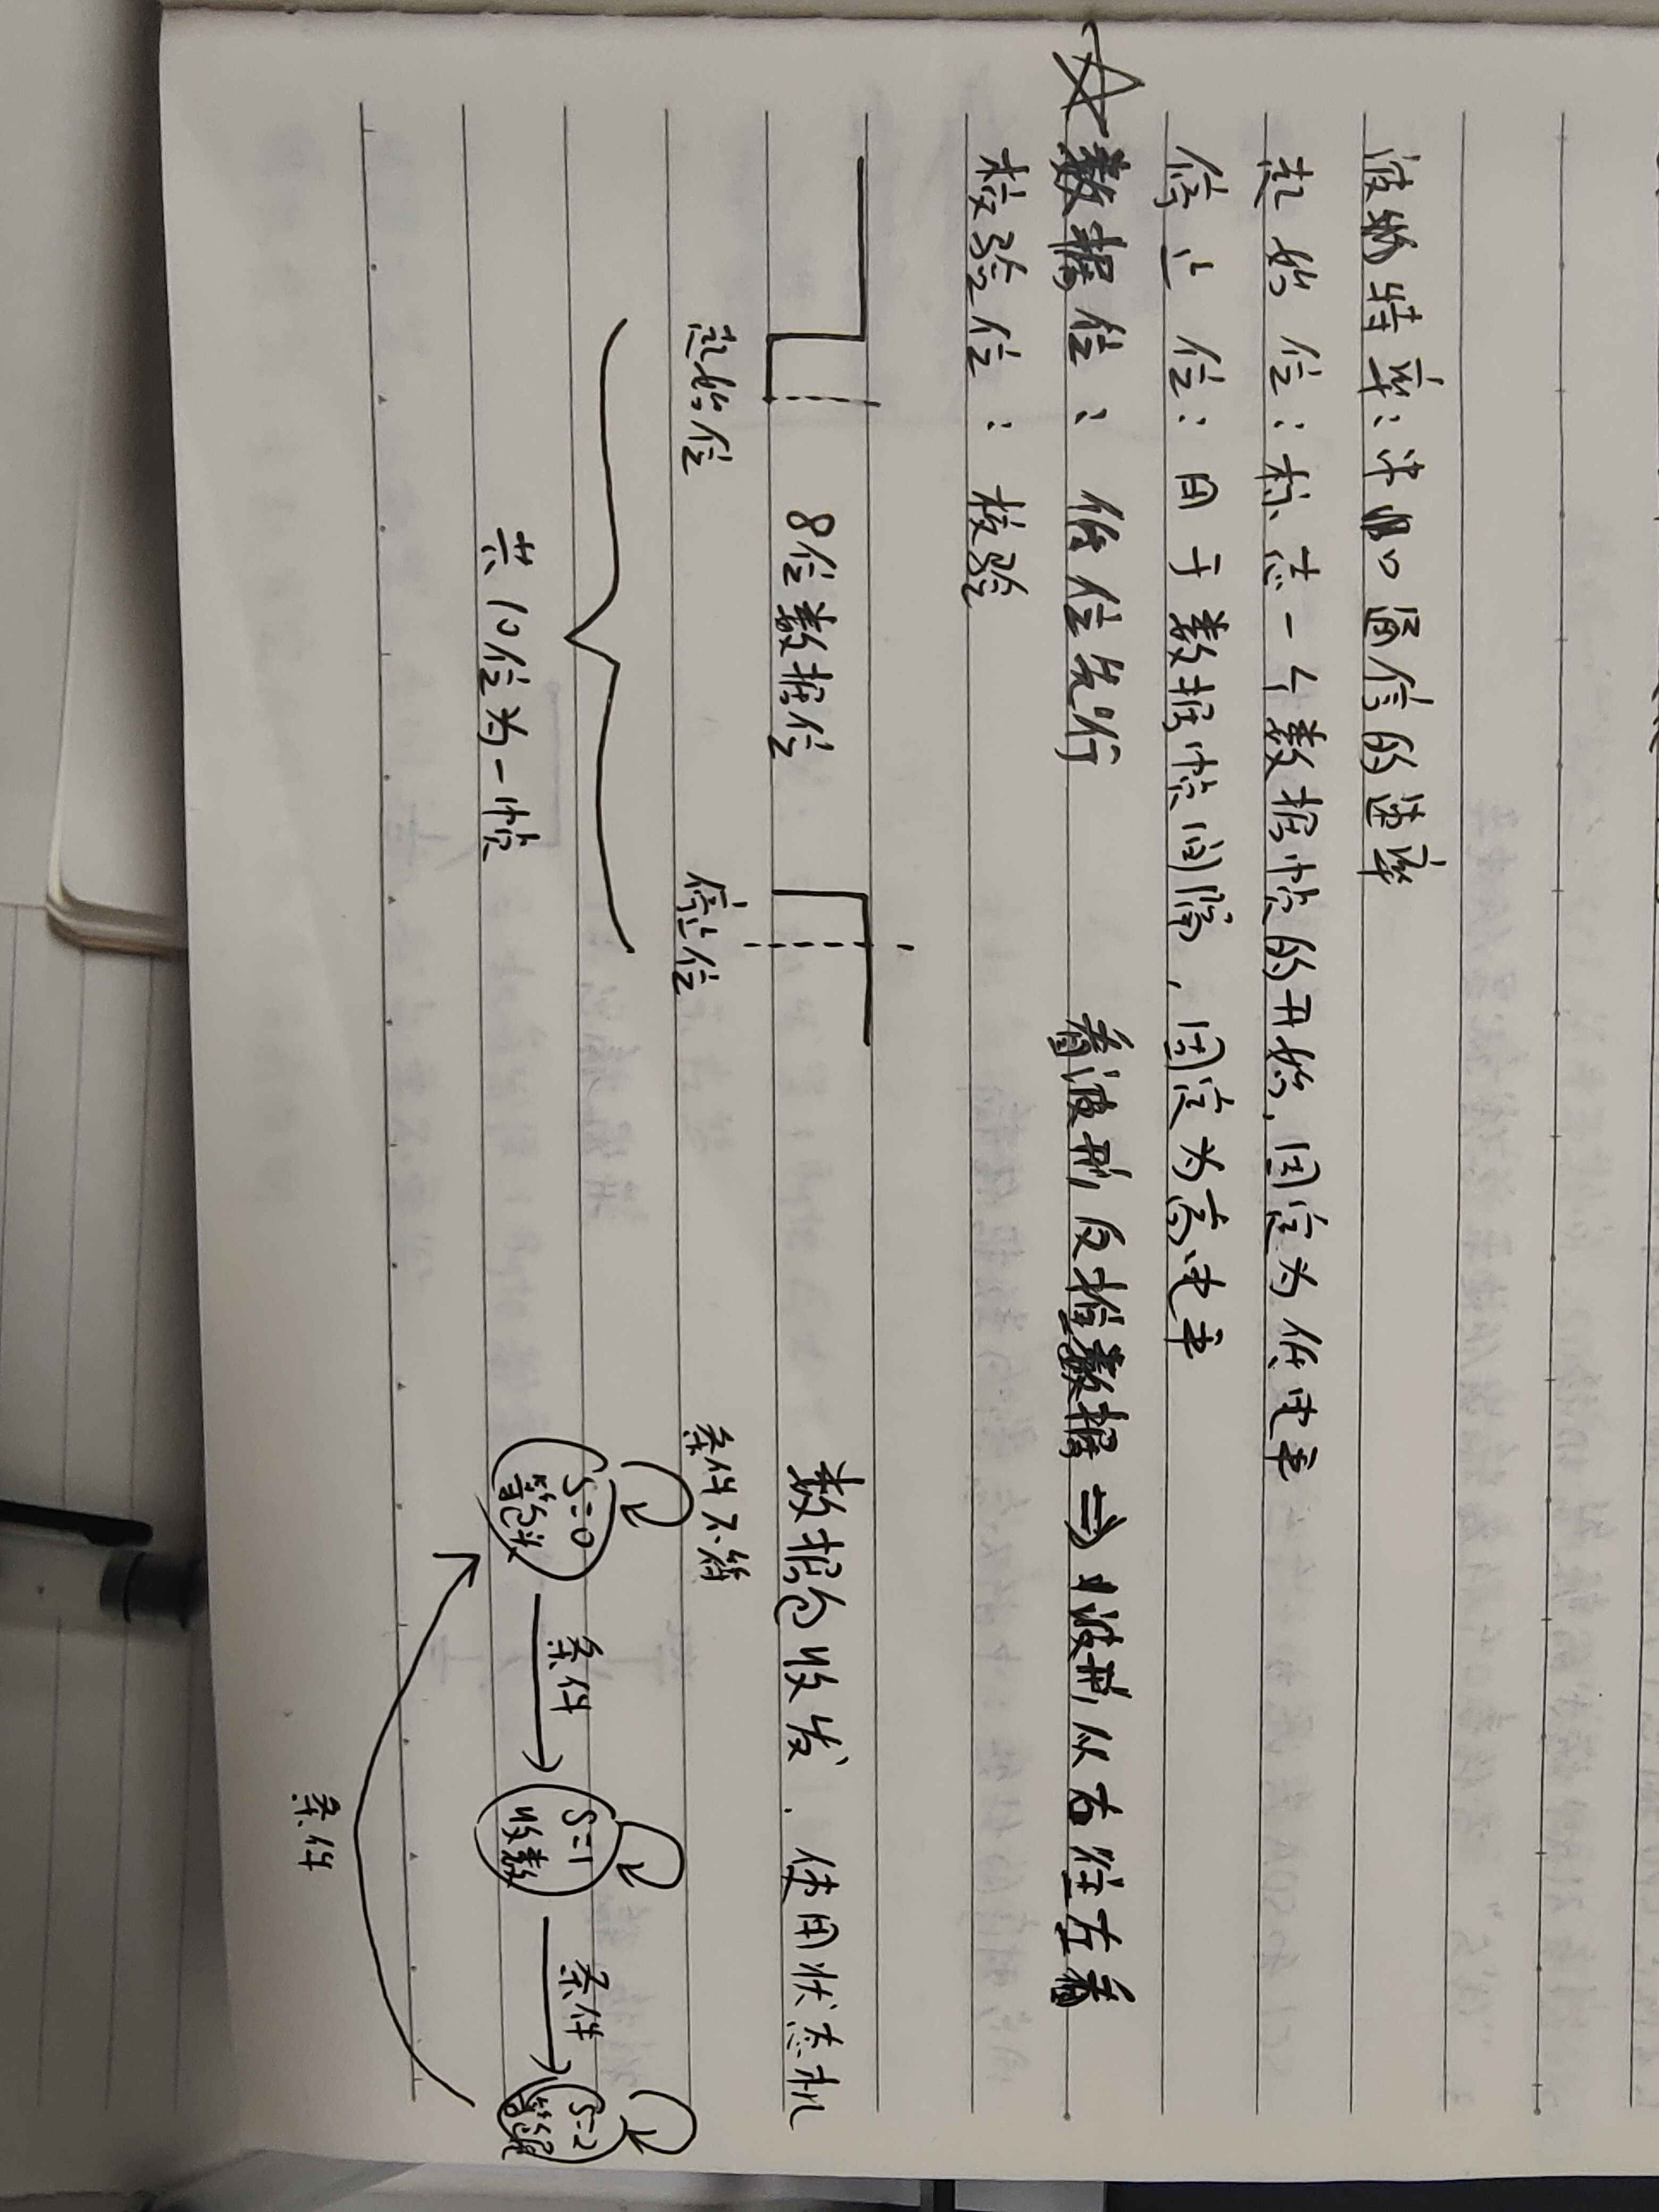 波特率：串口通信的速率
起始位：标志一个数据帧的开始，固定为低电平
停止位：用于数据帧间隔，固定为高电平
☆数据位：低位先行 看波形反推数据 ⇒ 波形从右往左看
校验位：校验
8位数据位
起始位 停止位
共10位为一帧
数据包收发，使用状态机
条件不符
S=0 等包头
条件
S=1 收数据
条件
S=2
条件